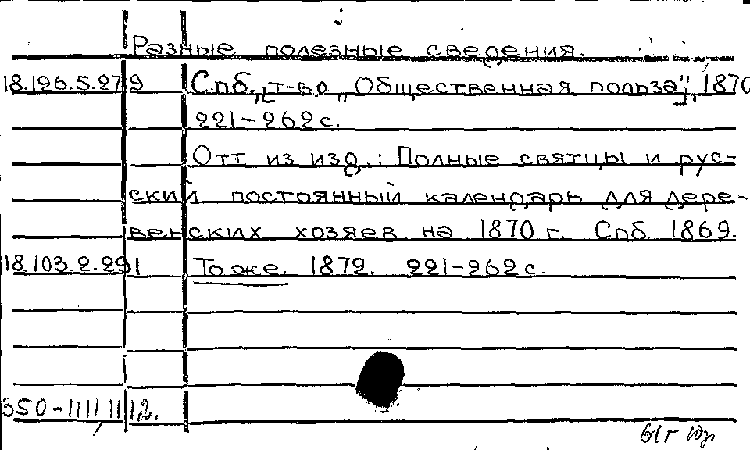 Разные полезные сведения.
18.196.5.279 Спб., [т-во „Общественная польза"], 1870
221-262 с.
Отт. из изд.: Полные святцы и рус-
ский постоянный календарь для дере-
венских хозяев на 1870 г. Спб. 1869.
18.103.2.291 То же. 1872. 221-262 с.